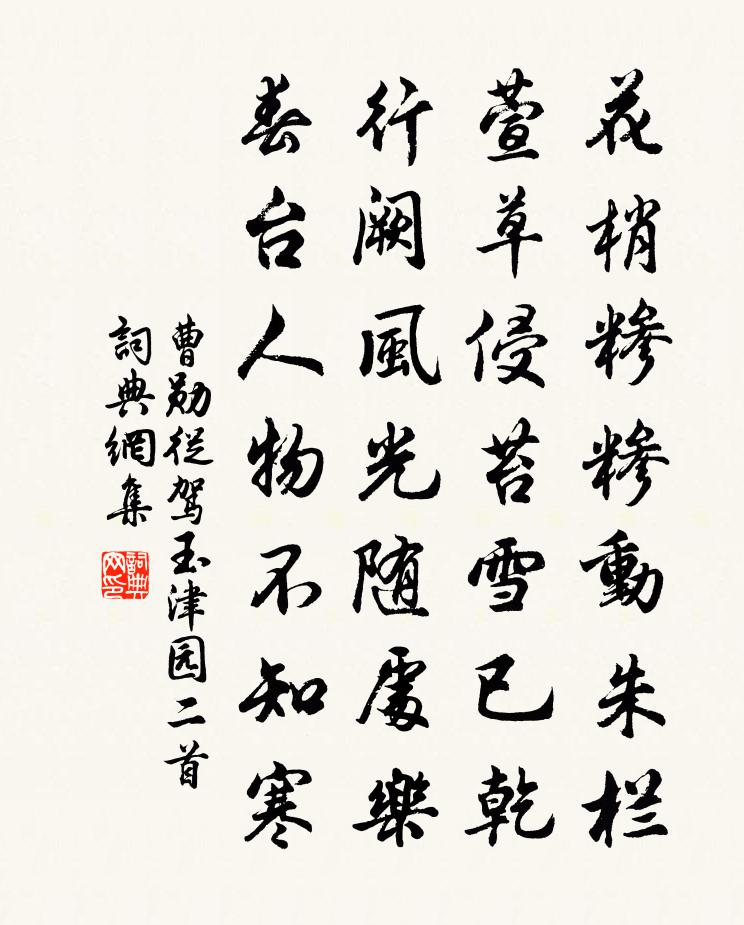 花梢糝糝動朱栏
萱草侵苔雪已乾
行阙風光随處樂
春台人物不知寒
曹勋從駕玉津园二首
詞典網集
詞典網印